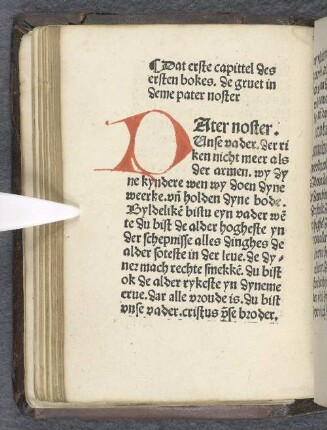 ¶ Dat erste capittel des
ersten bokes. de gruet in
deme pater noster
PAter noster.
Vnse vader. der ri
ken nicht meer als
der armen. wy dy
ne kyndere wen wy doen dyne
weerke. vñ holden dyne bode.
Byldelikē bistu eyn vader wē
te du bist de alder hogheste yn
der schepnisse alles dinghes de
alder soteste in der leue. de dy⸗
ner mach rechte smekkē. du bist
ok de alder rykeste yn dyneme
erue. dar alle vroude is. du bist
vnse vader. cristus v̄se broder.